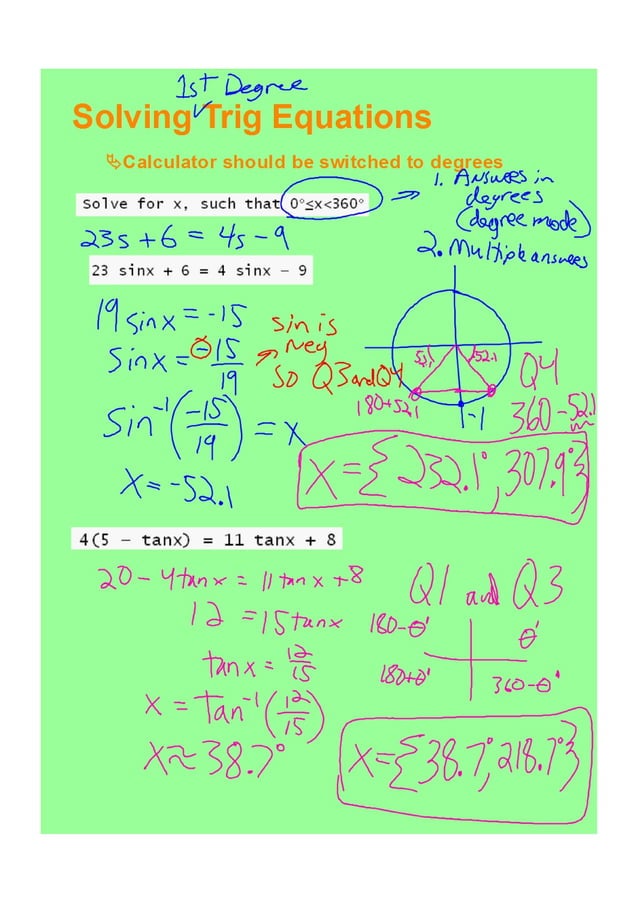 1st Degree
Solving Trig Equations
Calculator should be switched to degrees
Solve for x, such that 0°≤x<360°
1. Answers in
degrees
(degree mode)
2. Multiple answers
23s + 6 = 4s - 9
23 sinx + 6 = 4 sinx – 9
19 sinx = -15
sinx = -15/19
sin is
Neg
so Q3 and Q4
Sin⁻¹(-15/19) = x
x = -52.1
52.1
52.1
180+52.1
-1
Q4
360-52.1
x = {232.1°, 307.9°}
4(5 – tanx) = 11 tanx + 8
20 - 4tanx = 11tanx + 8
12 = 15tanx
tanx = 12/15
x = Tan⁻¹(12/15)
x ≈ 38.7°
Q1 and Q3
180-θ'
θ'
180+θ'
360-θ'
x = {38.7°, 218.7°}